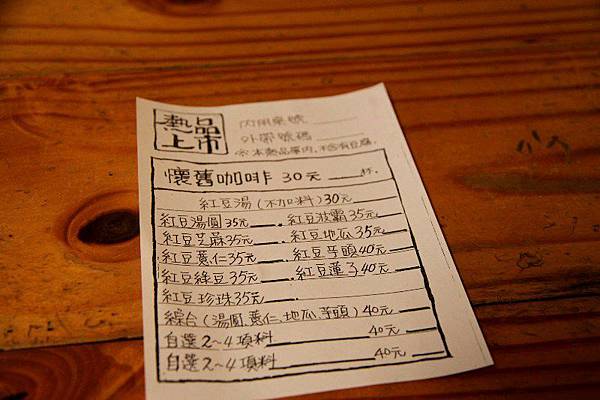 熱品
上市
內用桌號
外帶號碼
※本熱品單內,不含有豆腐.
懷舊咖啡 30元 杯.
紅豆湯(不加料)30元
紅豆湯圓35元 . 紅豆波霸35元
紅豆芝麻35元 . 紅豆地瓜35元
紅豆薏仁35元 . 紅豆芋頭40元
紅豆綠豆35元 . 紅豆蓮子40元
紅豆珍珠35元 .
綜合(湯圓.薏仁.地瓜.芋頭)40元
自選2~4項料 40元
自選2~4項料 40元